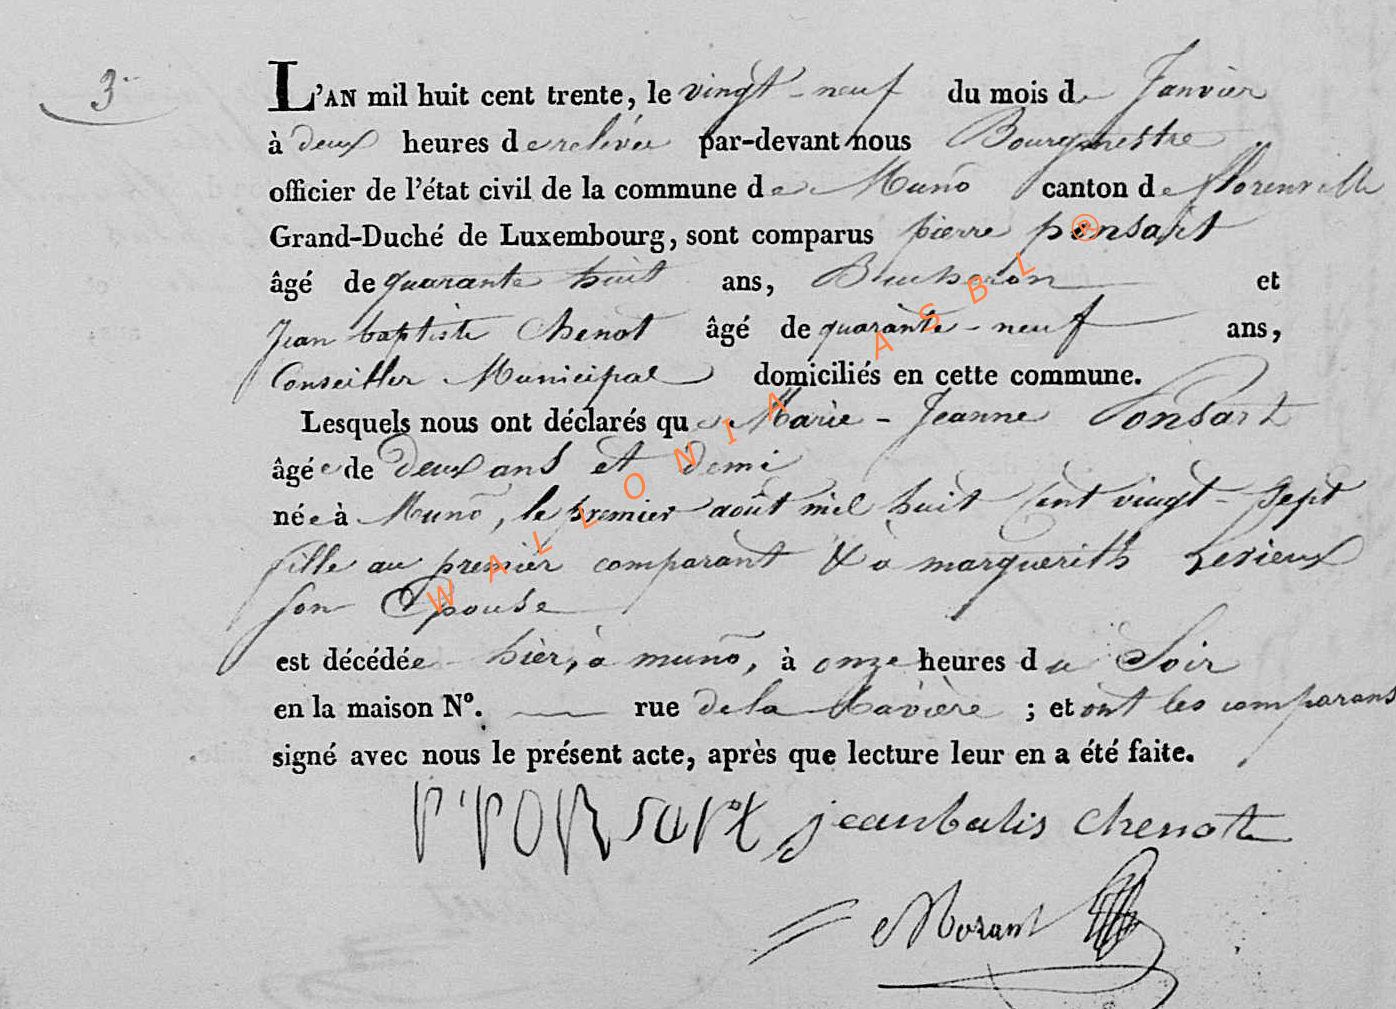 3
L'AN mil huit cent trente, le vingt-neuf du mois de Janvier
à deux heures de relevée par-devant nous Bourgmestre
officier de l'état civil de la commune de Muno canton de florenville
Grand-Duché de Luxembourg, sont comparus pierre ponsart
âgé de quarante huit ans, Bucheron et
Jean baptiste Chenot âgé de quarante-neuf ans,
Conseiller Municipal domiciliés en cette commune.
Lesquels nous ont déclarés que Marie-Jeanne Ponsart
âgée de deux ans et demi
née à Muno, le premier août mil huit Cent vingt-Sept
fille au premier comparant & à marguerith
Son Epouse
est décédée hier, à muno, à onze heures du Soir
en la maison N°. rue de la ; et ont les comparans
signé avec nous le présent acte, après que lecture leur en a été faite.
P ponsart jean batis chenot
Morant
WALLONIA ASBL ®